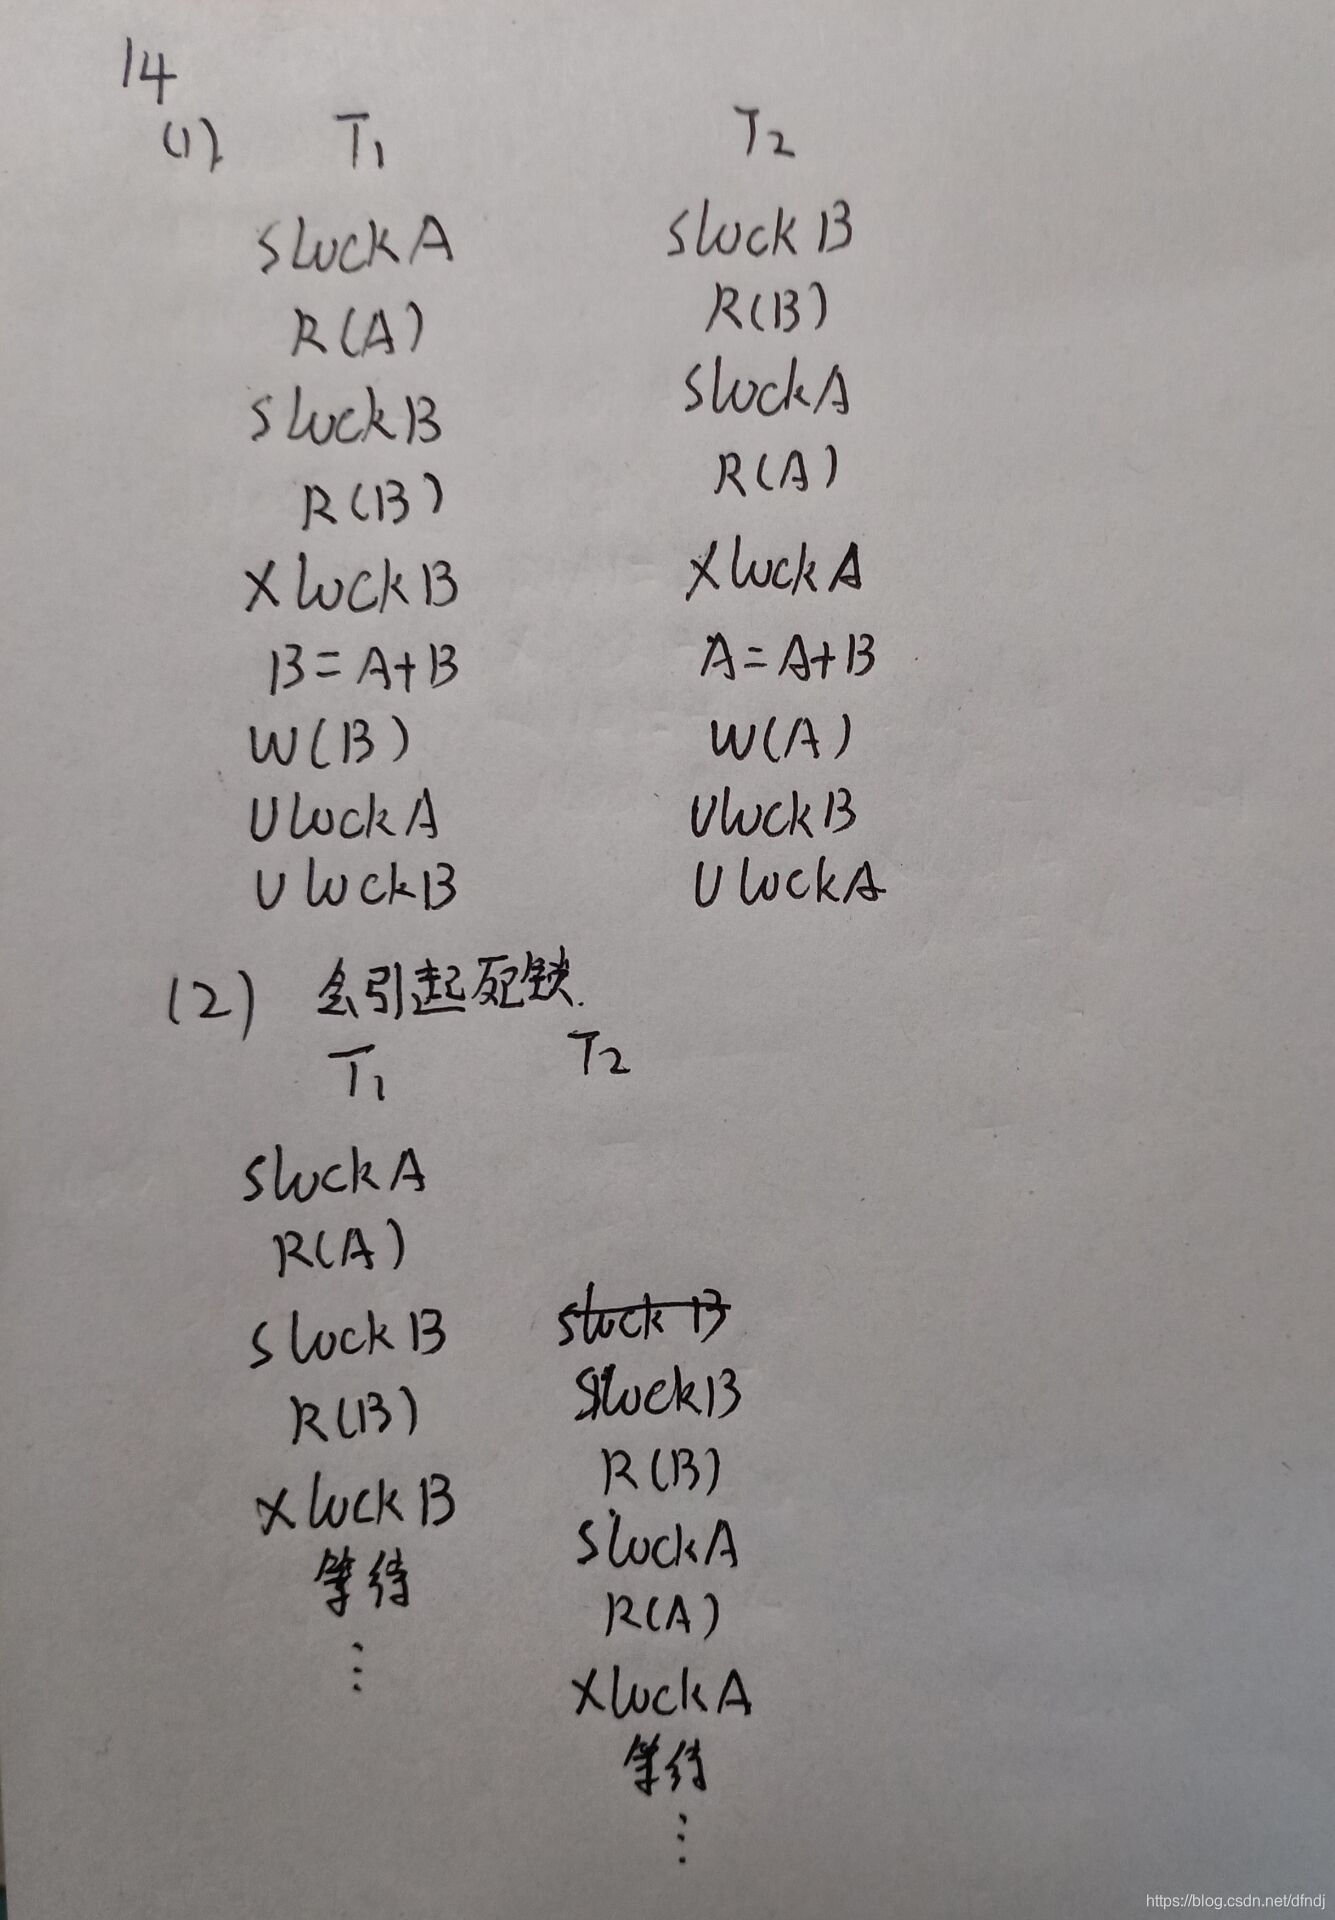 14
(1) T1 T2
Slock A Slock B
R(A) R(B)
Slock B Slock A
R(B) R(A)
Xlock B Xlock A
B=A+B A=A+B
W(B) W(A)
Ulock A Ulock B
Ulock B Ulock A
(2) 会引起死锁.
T1 T2
Slock A
R(A)
Slock B Slock B
R(B) Slock B
Xlock B R(B)
等待 Slock A
⋮ R(A)
Xlock A
等待
⋮
https://blog.csdn.net/dfndj